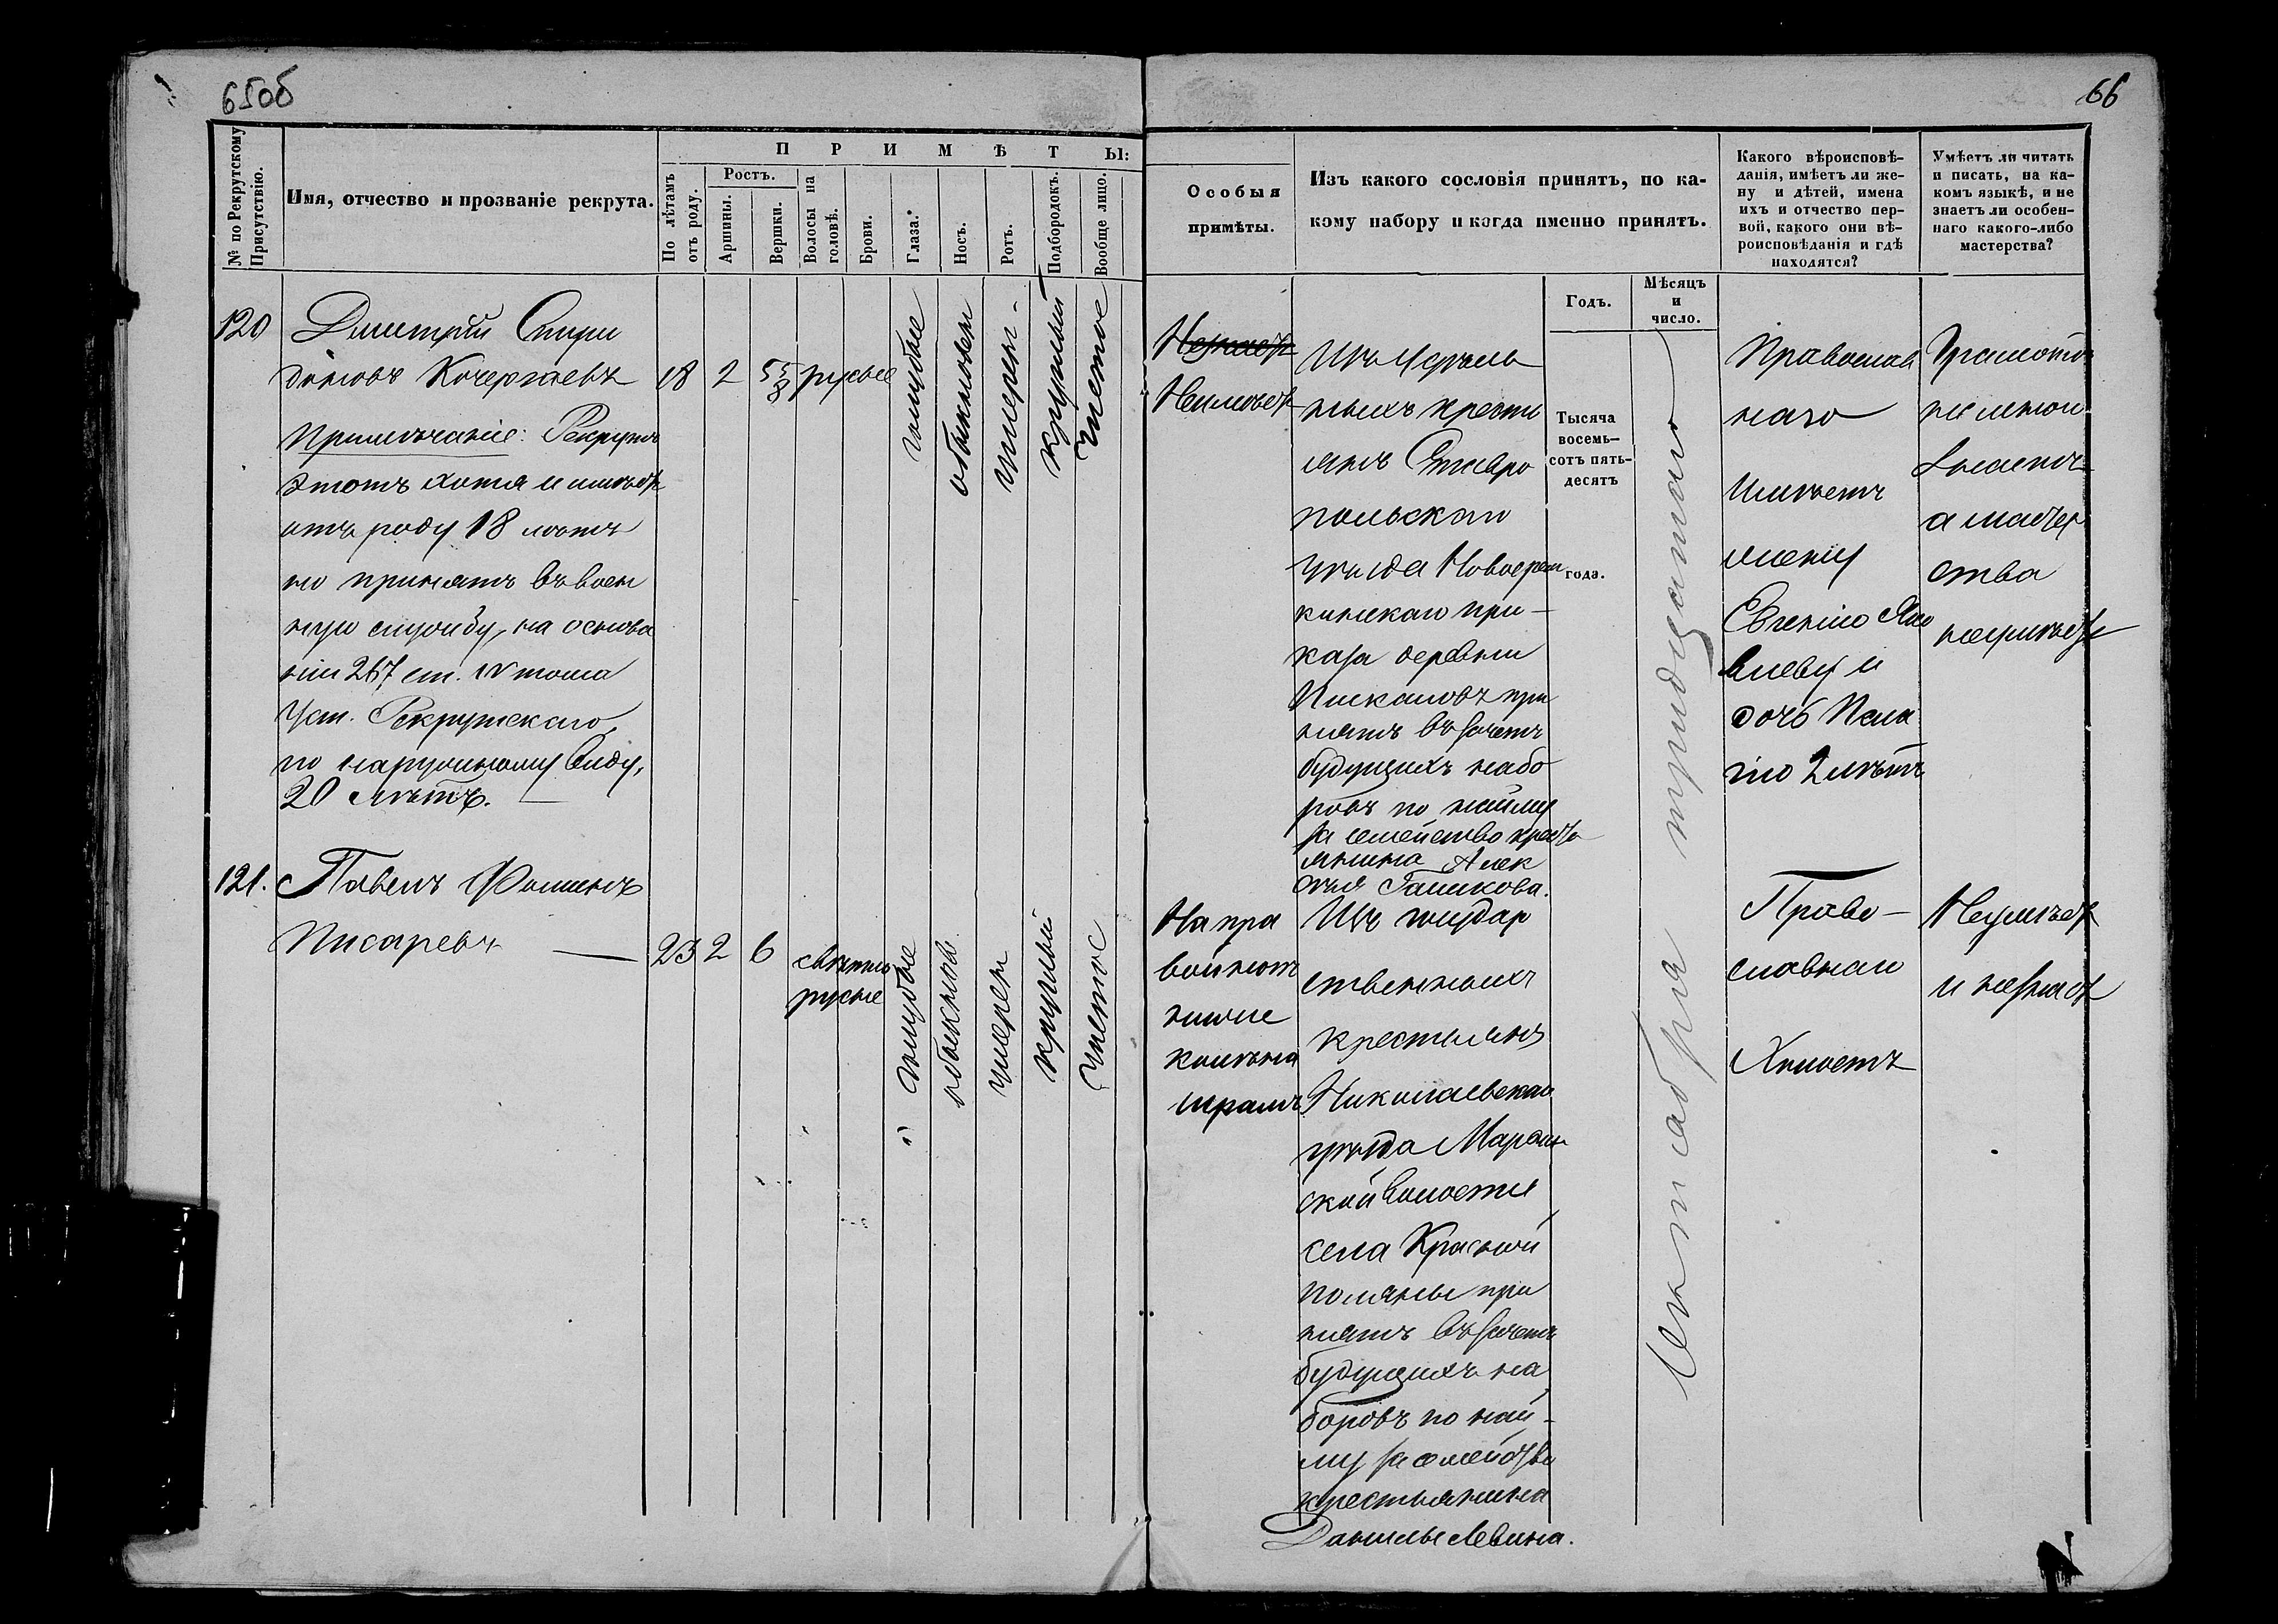 65об
66
№ по Рекрутскому Присутствію.
Имя, отчество и прозваніе рекрута.
ПРИМѢТЫ:
По лѣтамъ отъ роду.
Ростъ.
Аршины.
Вершки.
Волосы на головѣ.
Брови.
Глаза.
Носъ.
Ротъ.
Подбородокъ.
Вообще лицо.
Особыя
примѣты.
Изъ какого сословія принятъ, по ка-
кому набору и когда именно принятъ.
Годъ.
Мѣсяцъ
и
число.
Какого вѣроисповѣ-
данія, имѣетъ ли же-
ну и дѣтей, имена
ихъ и отчество пер-
вой, какого они вѣ-
роисповѣданія и гдѣ
находятся?
Умѣетъ ли читать
и писать, на ка-
комъ языкѣ, и не
знаетъ ли особен-
наго какого-либо
мастерства?
120
Дмитрій Спири
доновъ Кочергаевъ
Примѣчаніе: Рекрутъ
этотъ хотя и имѣетъ
отъ роду 18 лѣтъ
но принятъ въ воен
ную службу, на основа
ніи 267 ст. IV тома
Уст. Рекрутскаго,
по наружному виду,
20 лѣтъ.
18
2
5 5/8
русые
голубые
обыкновен
умерен.
круглый
чистое
Неимѣет
Изъ Удѣль
ныхъ кресть
янъ Ставро
польскаго
уѣзда
кинскаго при-
каза деревни
Пискаловъ при
нятъ въ зачетъ
будущихъ набо
ровъ по найму
за семейство кресть
янина Алек
сѣя Гашкова.
Тысяча
восемь-
сотъ пять-
десятъ
года.
Октября тридцатаго
Православ
наго
Имѣетъ
жену
Евгенію Яко
влеву и
дочь Пела
гію 2 лѣтъ
Грамотѣ
а мастер
ства
неимѣет
121.
Павелъ Фоминъ
Писаревъ
23
2
6
свѣтло
русые
голубые
обыкнов.
умерен
круглый
чистое
На пра
вой ногѣ
ниже
колѣна
шрамъ
Изъ государ
ственныхъ
крестьянъ
Николаевскаго
уѣзда
ской волости
села Красной
Поляны при
нятъ въ зачетъ
будущихъ на
боровъ по най-
му за семейство
крестьянина
Данилы Левина.
Право-
славнаго
Холостъ
Неумѣет
и незнает